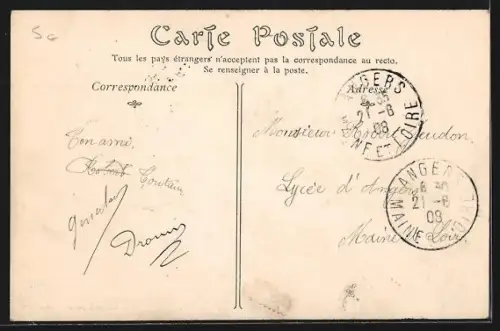 5c
Carte Postale
Tous les pays étrangers n'acceptent pas la correspondance au recto.
Se renseigner à la poste.
Correspondance
Adresse
Ton ami
Drouin
Monsieur
Lycée d'Angers
Maine Loir
ANGERS
21-6
08
MAINE ET LOIRE
ANGERS
21-6
08
MAINE LOIRE